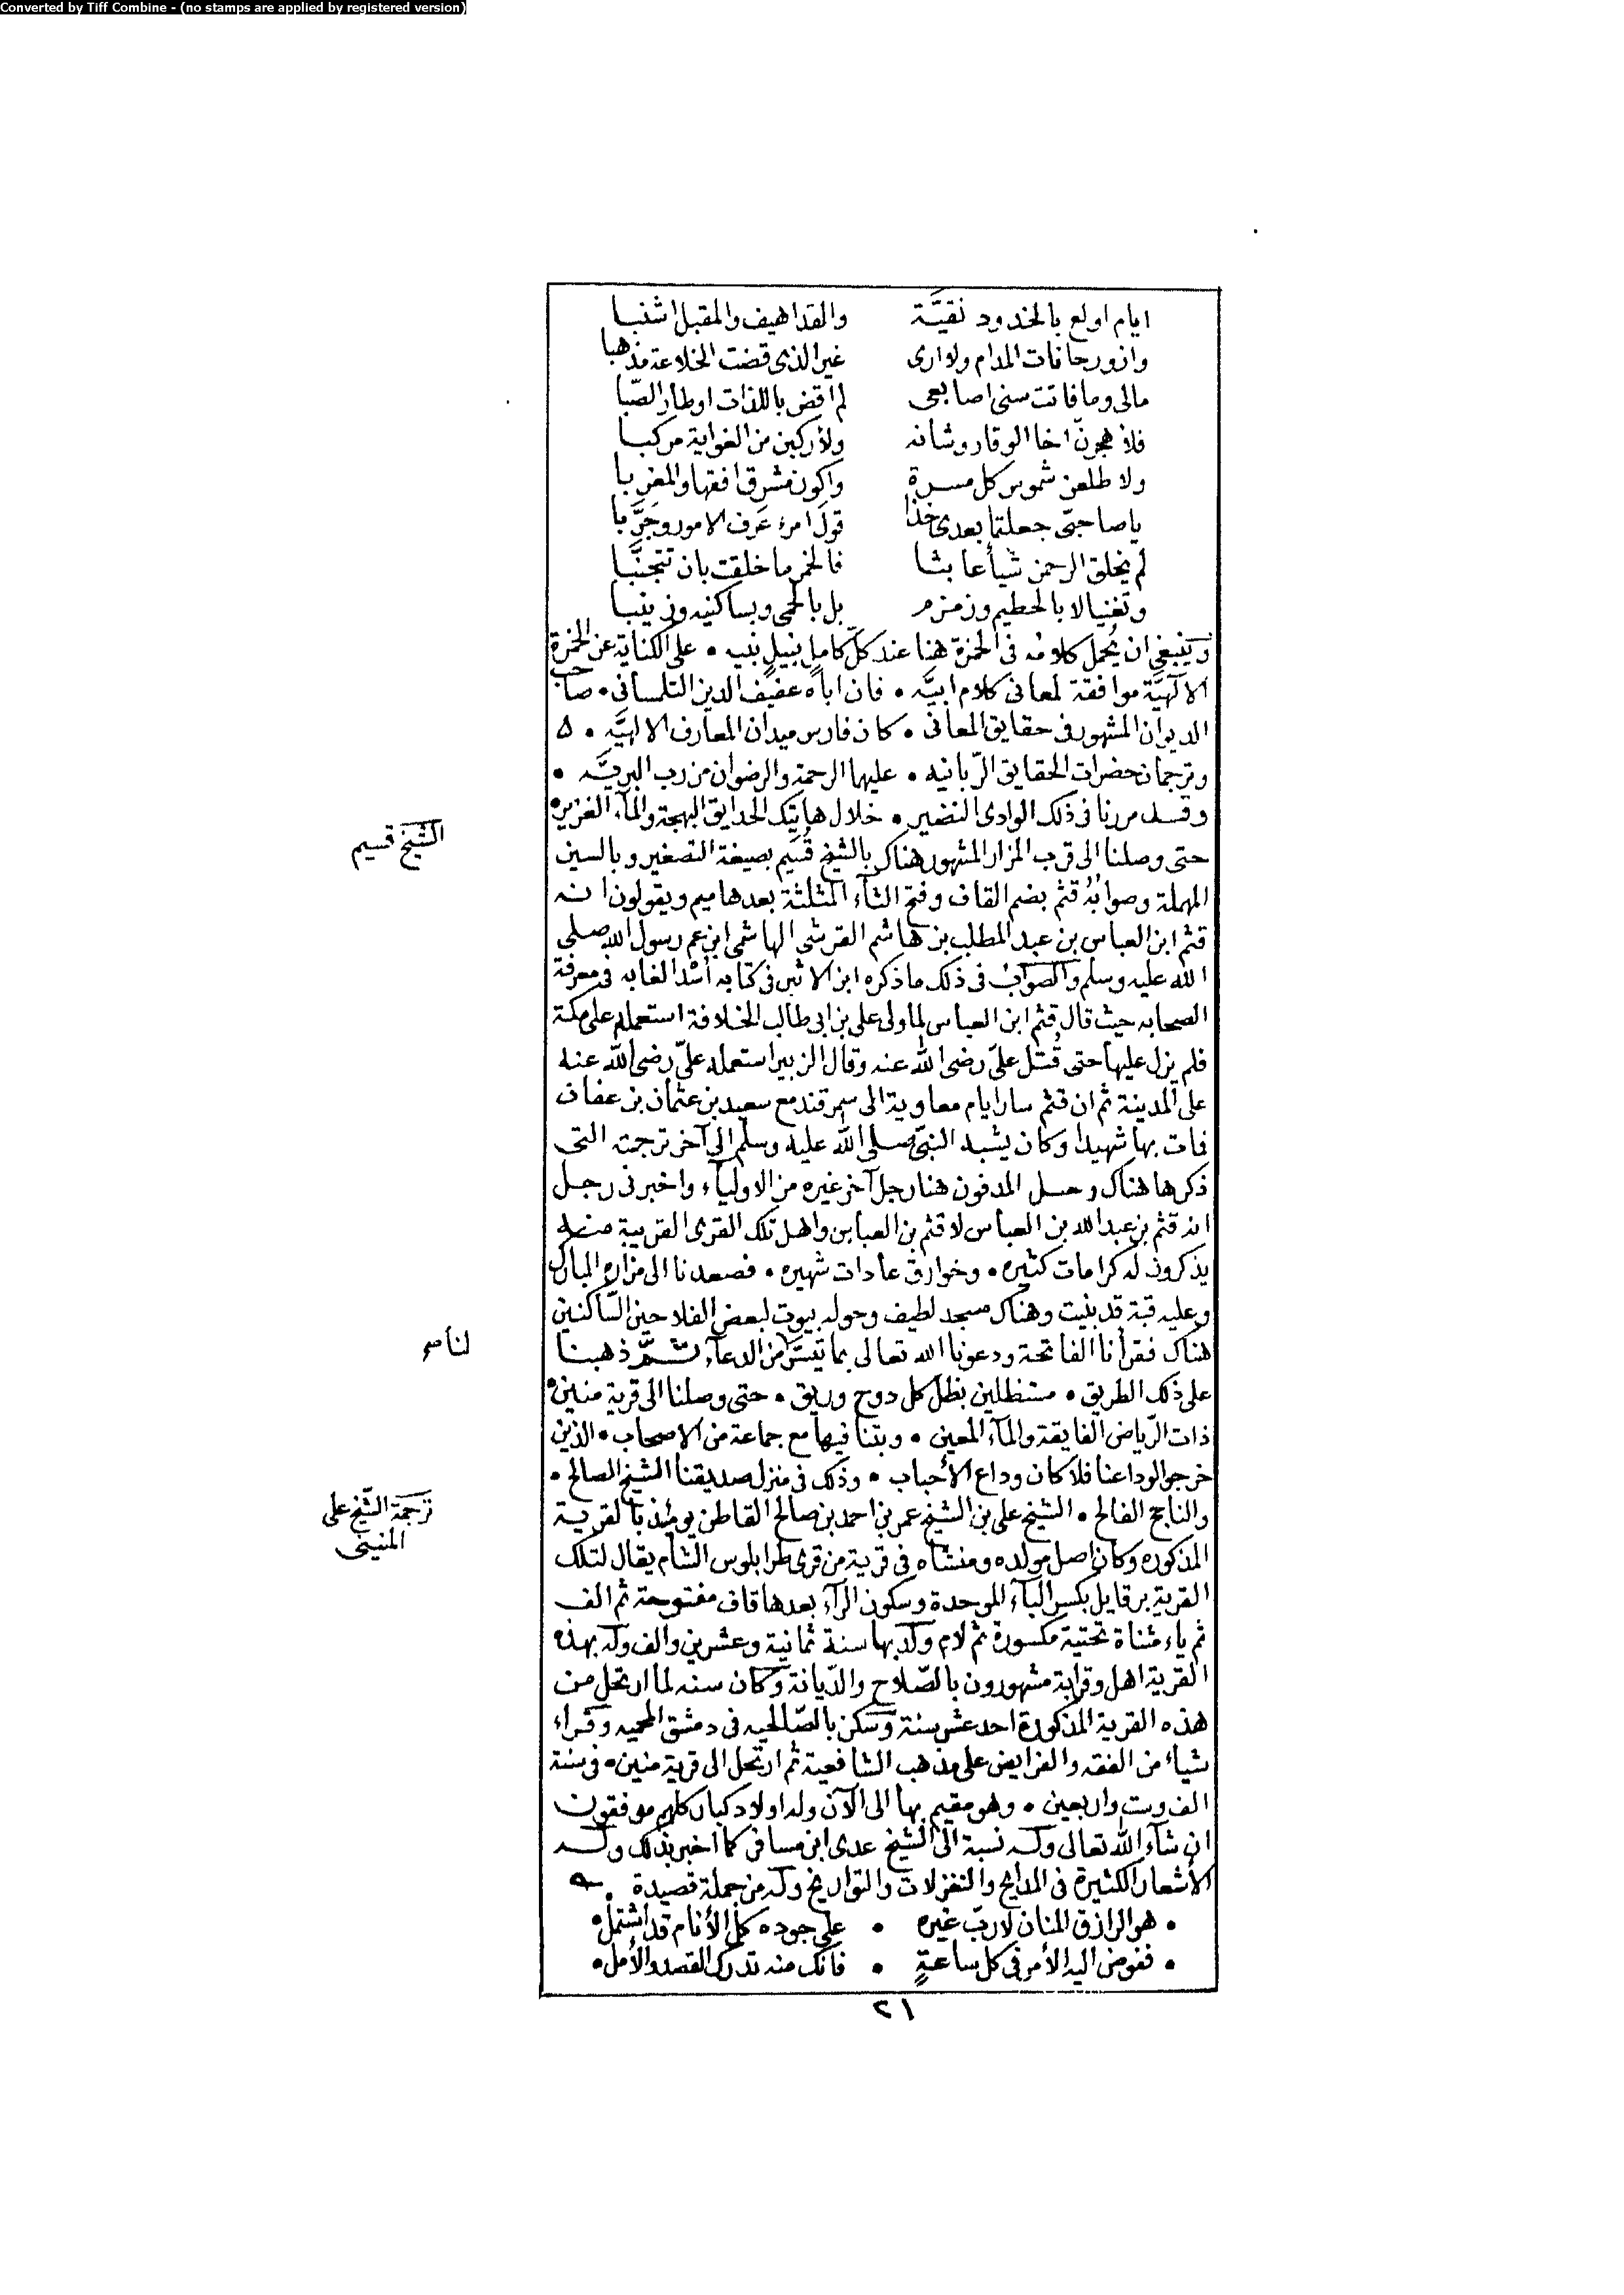 Converted by Tiff Combine - (no stamps are applied by registered version)
ايام اولع بالخدود نقيَّة والقد اهيف والمقبل اشنبا
وازور حانات المدام ولا ارى غير الذى قضت الخلاعة مذهبا
مالى وما فاتت سنى اصابعى لم اقض باللذات اوطار الصّبا
فلا هجرنّ اخا الوقار وشانه ولأركبن من الغواية مركبا
ولا طلعن شموس كل مسرة واكون مشرق افقها والمغربا
يا صاحبىّ جعلتما بعدى خذا قول امرء عَرف الامور وجَرَّبا
لم يخلق الرحمن شيأ عابثا فالخمر ما خلقت بان تتجنَّبا
وتغنيا لا بالحطيم وزمزم بل بالحمى وبساكنيه وزينبا
وينبغى ان يُحمل كلامه فى الخمرة هنا عند كلّ كاملٍ نبيلٍ نبيه • على الكناية عن الخمرة
الالهيَّة موافقة لمعانى كلام ابيَّه • فان اباه عفيف الدين التلمسانى • صاحب
الديوان المشهور فى حقايق المعانى • كان فارس ميدان المعارف الالهيَّه • ۵
وترجمان حضرات الحقايق الرّبانيه • عليهما الرحمة والرضوان من رب البريَّه •
وقد مررنا فى ذلك الوادى النضير • خلال هاتيك الحدايق البهجة والمآء الغزير •
الشيخ قسيم
حتى وصلنا الى قرب المزار المشهور هناك بالشيخ قُسَيم بصيغة التصغير وبالسين
المهملة وصوابُهُ قثم بضم القاف وفتح الثآء المثلثة بعدها ميم ويقولون انه
قثم ابن العباس بن عبد المطلب بن هاشم القرشى الهاشمى ابن عم رسول الله صلى
الله عليه وسلم والصواب فى ذلك ما ذكره ابن الاثير فى كتابه أسْد الغابه فى معرفة
الصحابه حيث قال قثم ابن العباس لما ولى على بن ابى طالب الخلافة استعمله على مكة
فلم يزل عليها حتى قُتل علىّ رضى الله عنه وقال الزبير استعمله علىّ رضى الله عنه
على المدينة ثم ان قثم سار ايام معاوية الى سمرقند مع سعيد بن عثمان بن عفان
فمات بها شهيدا وكان يشبه النبىّ صلى الله عليه وسلم الى آخر ترجمته التى
ذكرها هناك ولعل المدفون هنا رجل آخر غيره من الاوليآء واخبرنى رجل
انه قثم بن عبد الله بن العباس لا قثم بن العباس واهل تلك القرى القريبة منه
يذكرون له كرامات كثيره • وخوارق عادات شهيره • فصعدنا الى مزاره المبارك
وعليه قبة قد بنيت وهناك مسجد لطيف وحوله بيوت لبعض الفلاحين السّاكنين
هناك فقرأنا الفاتحة ودعونا الله تعالى بما تيسَّر من الدعآء ثمَّ ذهبنا
لنا صح
على ذلك الطريق • مستظلين بظل كل دوح وريق • حتى وصلنا الى قرية منين •
ذات الرّياض الفايقة والمآء المعين • وبتنا فيها مع جماعة من الاصحاب • الذين
خرجوا لوداعنا فلا كان وداع الأحباب • وذلك فى منزل صديقنا الشيخ الصالح •
ترجمة الشّيخ على
المنينى
والناجح الفالح • الشيخ على بن الشيخ عمر بن احمد بن صالح القاطن يومئذ بالقرية
المذكوره وكان اصل مولده ومنشأه فى قرية من قرى طرابلوس الشام يقال لتلك
القرية برقايل بكسر البآء الموحدة وسكون الرآء بعدها قاف مفتوحة ثم الف
ثم ياء مثناة تحتية مكسورة ثم لام ولد بها سنة ثمانية وعشرين والف وله بهذه
القرية اهل وقرابة مشهورون بالصّلاح والدّيانة وكان سنه لما ارتحل من
هذه القرية المذكورة احد عشر سنة وسكن بالصّالحيه فى دمشق المحميه وقراء
شياء من الفقه والفرايض على مذهب الشافعية ثم ارتحل الى قرية منين • فى سنة
الف وست واربعين • وهو مقيم بها الى الآن وله اولاد كبار كلهم موفقون
ان شآء الله تعالى وله نسبة الى الشيخ عدى ابن مسافر كما اخبر بذلك وله
الأشعار الكثيرة فى المدايح والتغزلات والتواريخ وله من جملة قصيدة •
• هو الرازق المنان لا ربّ غيره • على جوده كلّ الأنام قد اشتمل •
• ففوض اليه الأمر فى كل ساعةٍ • فانك منه تدرك القصد والأمل •
٢١